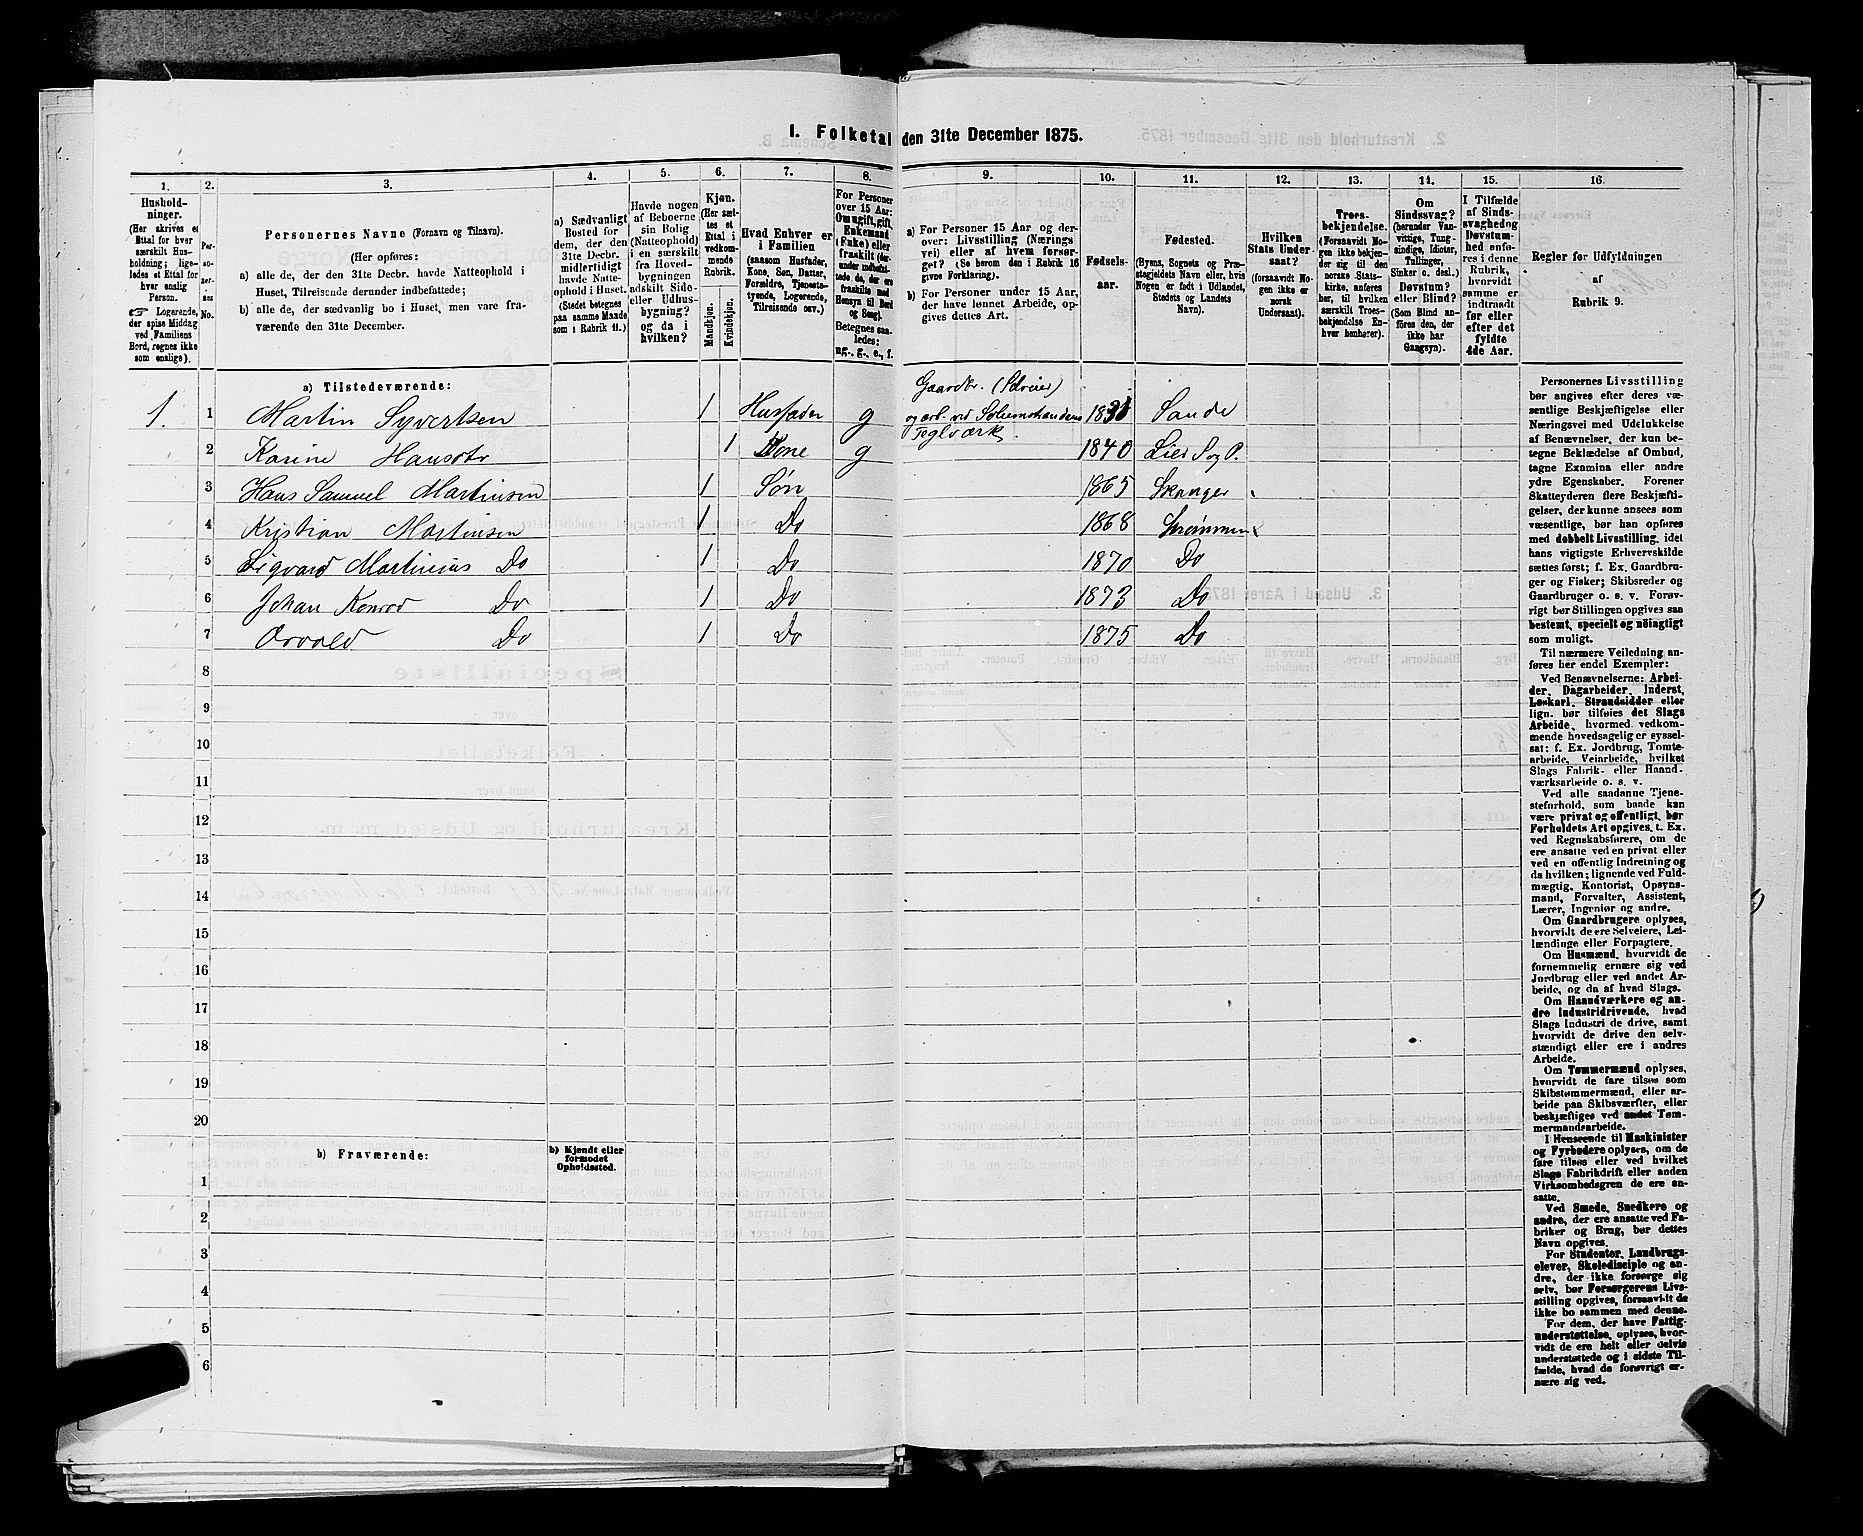 I. Folketal den 31te December 1875.
1. 2. 3. 4. 5. 6. 7. 8. 9. 10. 11. 12. 13. 14. 15. 16.
Hushold-
ninger.
(Her skrives et
Ettal for hver
særskilt Hus-
holdning; lige-
ledes et Ettal for
hver enslig
Person.
☞ Logerende,
der spise Middag
ved Familiens
Bord, regnes ikke
som enslige).
Per-
so-
ner-
nes
No.
Personernes Navne (Fornavn og Tilnavn).
(Her opføres:
a) alle de, der den 31te Decbr. havde Natteophold i
Huset, Tilreisende derunder indbefattede;
b) alle de, der sædvanlig bo i Huset, men vare fra-
værende den 31te December.
a) Sædvanligt
Bosted for
dem, der den
31te Decbr.
midlertidigt
havde Natte-
ophold i Huset.
(Stedet betegnes
paa samme Maade
som i Rubrik 11.)
Havde nogen
af Beboerne
sin Bolig
(Natteophold)
i en særskilt
fra Hoved-
bygningen
adskilt Side-
eller Udhus-
bygning?
og da i
hvilken?
Kjøn.
(Her sæt-
tes et
Ettal i
vedkom-
mende
Rubrik.
Mandkjøn.
Kvindekjøn.
Hvad Enhver er
i Familien
(saasom Husfader,
Kone, Søn, Datter,
Forældre, Tjeneste-
tyende, Logerende,
Tilreisende osv.)
For Personer
over 15 Aar:
Om ugift, gift,
Enkemand
(Enke) eller
fraskilt (der-
under indbefat-
tede de, der ere
fraskilte med
Hensyn til Bord
og Seng).
Betegnes saa-
ledes:
ug., g., e., f.
a) For Personer 15 Aar og der-
over: Livsstilling (Nærings
vei) eller af hvem forsør-
get? (Se herom den i Rubrik 16
givne Forklaring).
b) For Personer under 15 Aar,
der have lønnet Arbeide, op-
gives dettes Art.
Fødsels-
aar.
Fødested.
(Byens, Sognets og Præ-
stegjeldets Navn eller, hvis
Nogen er født i Udlandet,
Stedets og Landets
Navn).
Hvilken
Stats Under-
saat?
(forsaavidt No-
gen ikke er
norsk
Undersaat).
Troes-
bekjendelse.
(Forsaavidt No-
gen ikke bekjen-
der sig til den
norske Stats-
kirke, anføres
her, til hvilken
særskilt Troes-
bekjendelse En-
hver henhører).
Om
Sindssvag?
(herunder Van-
vittige, Tung-
sindige, Idioter,
Tullinger,
Sinker o. desl.)
Døvstum?
eller Blind?
(Som Blind an-
føres den, der
ikke har
Gangsyn).
I Tilfælde
af Sinds-
svaghed og
Døvstum-
hed anfø-
res i denne
Rubrik,
hvorvidt
samme er
indtraadt
før eller
efter det
fyldte
4de Aar.
Regler for Udfyldningen
af
Rubrik 9.
a) Tilstedeværende:
1. 1 Martin Syvertsen 1 Husfader g Gaardbr. (Selveier) og arb. ved Solumstrandens Teglværk. 1831 Sande
2 Karine Hansdtr 1 Kone g 1840 Lier S og P.
3 Hans Samuel Martinsen 1 Søn 1865 Skanger
4 Kristian Martinsen 1 Do 1868 Strømmen
5 Sigvard Martinius Do 1 Do 1870 Do
6 Johan Konrad Do 1 Do 1873 Do
7 Orvald Do 1 Do 1875 Do
8
9
10
11
12
13
14
15
16
17
18
19
20
b) Fraværende:
b) Kjendt eller
formodet
Opholdssted.
1
2
3
4
5
6
Personernes Livsstilling
bør angives efter deres væ-
sentlige Beskjæftigelse eller
Næringsvei med Udelukkelse
af Benævnelser, der kun be-
tegne Beklædelse af Ombud,
tagne Examina eller andre
ydre Egenskaber. Forener
Skatteyderen flere Beskjæfti-
gelser, der kunne ansees som
væsentlige, bør han opføres
med dobbelt Livsstilling, idet
hans vigtigste Erhvervskilde
sættes først; f. Ex. Gaardbru-
ger og Fisker; Skibsreder og
Gaardbruger o. s. v. Forøv-
rigt bør Stillingen opgives saa
bestemt, specielt og nöiagtigt
som muligt.
Til nærmere Veiledning an-
føres her endel Exempler:
Ved Benævnelserne: Arbei-
der, Dagarbeider, Inderst,
Løskarl, Strandsidder eller
lign. bør tilføies det Slags
Arbeide, hvormed vedkom-
mende hovedsagelig er syssel-
sat: f. Ex. Jordbrug, Tomte-
arbeide, Veiarbeide, hvilket
Slags Fabrik- eller Haand-
værksarbeide o. s. v.
Ved alle saadanne Tjene-
steforhold, som baade kan
være privat og offentligt, bør
Forholdets Art opgives, t. Ex.
ved Regnskabsførere, om de
ere ansatte ved en privat eller
ved en offentlig Indretning og
da hvilken; lignende ved Fuld-
mægtig, Kontorist, Opsyns-
mand, Forvalter, Assistent,
Lærer, Ingeniør og andre.
Om Gaardbrugere oplyses,
hvorvidt de ere Selveiere, Lei-
lændinge eller Forpagtere.
Om Husmænd, hvorvidt de
fornemmelig ernære sig ved
Jordbrug eller ved andet Ar-
beide, og da af hvad Slags.
Om Haandværkere og an-
dre Industridrivende, hvad
Slags Industri de drive, samt
hvorvidt de drive den selv-
stændigt eller ere i andres
Arbeide.
Om Tømmermænd oplyses,
hvorvidt de fare tilsøs som
Skibstømmermænd, eller ar-
beide paa Skibsværfter, eller
beskjæftiges ved andet Tøm-
mermandsarbeide.
I Henseende til Maskinister
og Fyrbødere oplyses, om de
fare tilsøs eller ved hvilket
Slags Fabrikdrift eller anden
Virksombedsgren de ere an-
satte.
Ved Smede, Snedkere og
andre, der ere ansatte ved Fa-
briker og Brug, bør dettes
Navn opgives.
For Studenter, Landbrugs-
elever, Skoledisciple og an-
dre, der ikke forsørge sig
selv, bør Forsørgerens Livs-
stilling opgives, forsaavidt de
ikke bo sammen med denne.
For dem, der have Fattig-
understøttelse, oplyses, hvor-
vidt de ere helt eller delvis
understøttede og i sidste Til-
fælde, hvad de forøvrigt er-
nære sig ved.